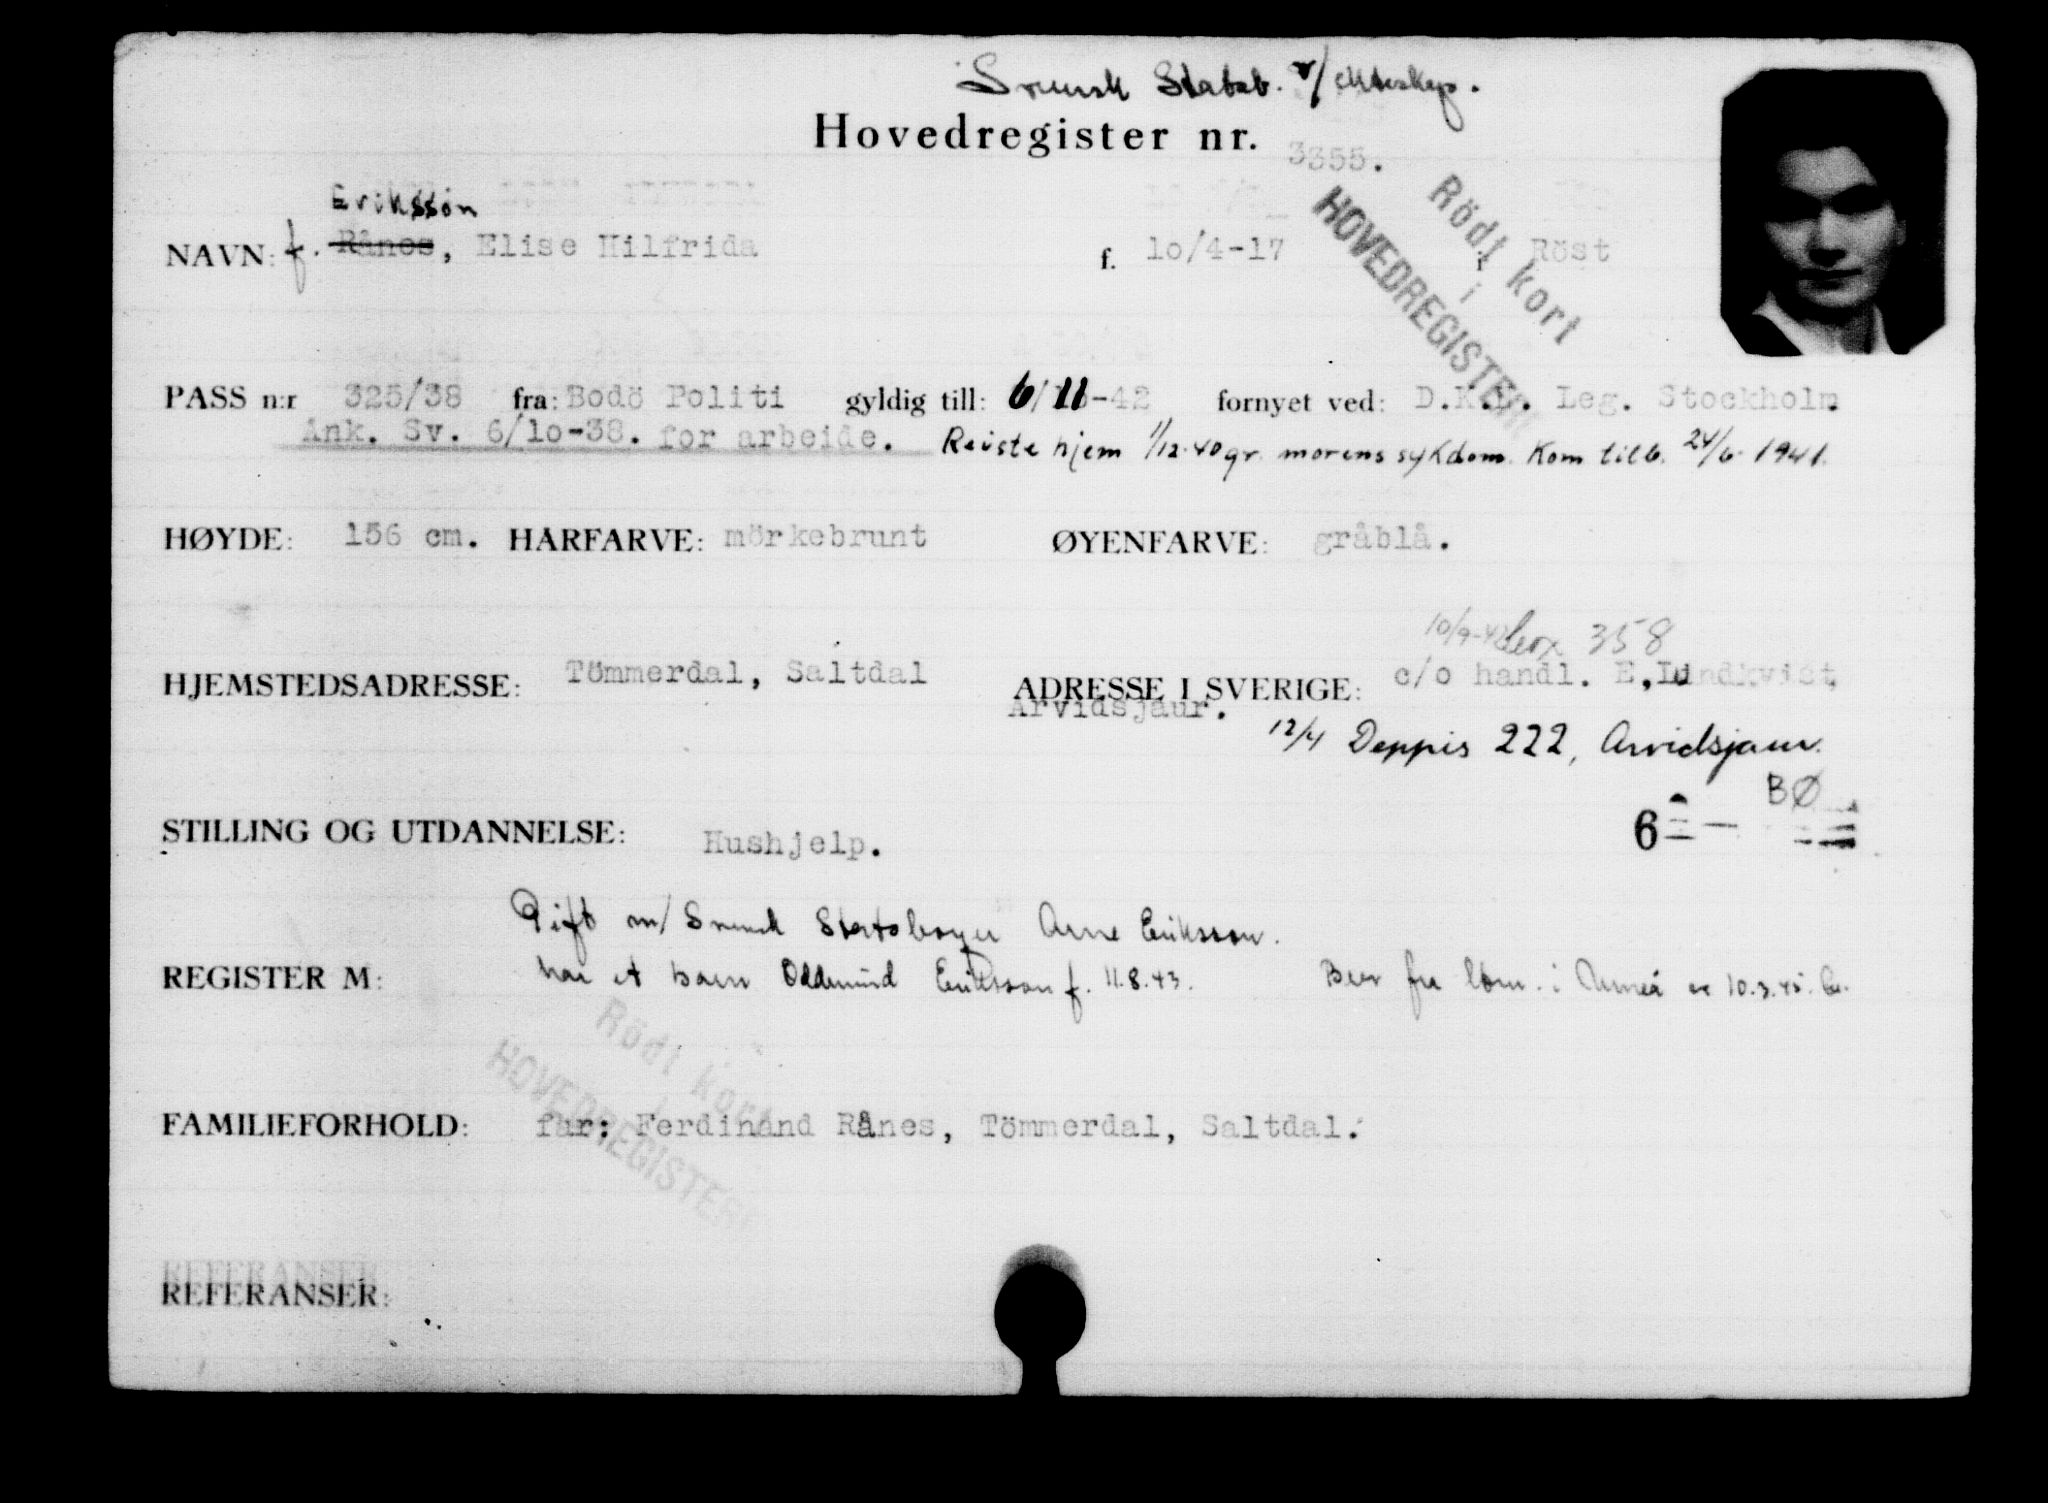 Svensk Statsb. v/ ekteskap.
Hovedregister nr. 3355.
Rödt kort
i
HOVEDREGISTER
Eriksson
NAVN: f. Rånes, Elise Hilfrida f. 10/4-17 i Röst
PASS n:r 325/38 fra: Bodö Politi gyldig till: 6/11-42 fornyet ved: D.K.N. Leg. Stockholm
Ank. Sv. 6/10-38. for arbeide. Reiste hjem 1/12-40 gr. morens sykdom. Kom tilb. 24/6-1941.
HØYDE: 156 cm. HARFARVE: mörkebrunt ØYENFARVE: gråblå.
10/9-42 358
HJEMSTEDSADRESSE: Tömmerdal, Saltdal ADRESSE I SVERIGE: c/o handl. E, Lundkvist,
Arvidsjaur.
12/4 Deppis 222, Arvidsjaur.
BØ
STILLING OG UTDANNELSE: Hushjelp. 6
Gift m/ Svensk Statsborger Arne Eriksson.
REGISTER M: har et barn Oddmund Eriksson f. 11.8.43. Brev fra i Umeå
Rödt kort
i
HOVEDREGISTER
FAMILIEFORHOLD: far: Ferdinand Rånes, Tömmerdal, Saltdal.
REFERANSER
REFERANSER: